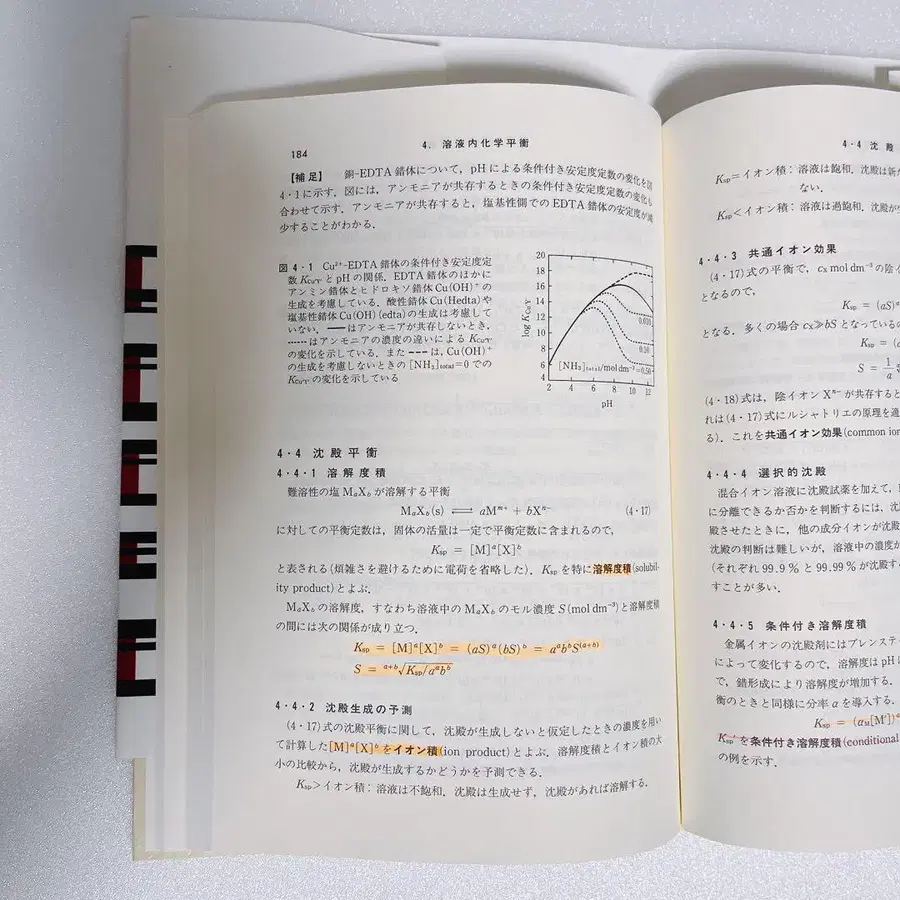 184
4. 溶液内化学平衡
【補足】 銅-EDTA 錯体について，pH による条件付き安定度定数の変化を図
4・1に示す．図には，アンモニアが共存するときの条件付き安定度定数の変化も
合わせて示す．アンモニアが共存すると，塩基性側での EDTA 錯体の安定度が減
少することがわかる．
図 4・1 Cu²⁺-EDTA 錯体の条件付き安定度定
数 K_Cu'Y' と pH の関係．EDTA 錯体のほかに
アンミン錯体とヒドロキソ錯体 Cu(OH)⁺ の
生成を考慮している．酸性錯体 Cu(Hedta) や
塩基性錯体 Cu(OH)(edta) の生成は考慮して
いない．──はアンモニアが共存しないとき，
......はアンモニアの濃度の違いによる K_Cu'Y'
の変化を示している．また---は，Cu(OH)⁺
の生成を考慮しないときの [NH₃]total＝0 での
K_Cu'Y' の変化を示している
log K_Cu'Y'
20
18
16
14
12
10
8
6
4
0.010
0.10
[NH₃]total/mol dm⁻³=0.50
2 4 6 8 10 12
pH
4・4 沈殿平衡
4・4・1 溶解度積
難溶性の塩 MaXb が溶解する平衡
MaXb(s) ⇌ aMᵐ⁺ + bXⁿ⁻ (4・17)
に対しての平衡定数は，固体の活量は一定で平衡定数に含まれるので，
Ksp = [M]ᵃ[X]ᵇ
と表される(煩雑さを避けるために電荷を省略した)．Ksp を特に溶解度積(solubil-
ity product)とよぶ．
MaXb の溶解度，すなわち溶液中の MaXb のモル濃度 S(mol dm⁻³)と溶解度積
の間には次の関係が成り立つ．
Ksp = [M]ᵃ[X]ᵇ = (aS)ᵃ(bS)ᵇ = aᵃbᵇS⁽ᵃ⁺ᵇ⁾
S = ᵃ⁺ᵇ√Ksp/aᵃbᵇ
4・4・2 沈殿生成の予測
(4・17)式の沈殿平衡に関して，沈殿が生成しないと仮定したときの濃度を用い
て計算した[M]ᵃ[X]ᵇ をイオン積(ion product)とよぶ．溶解度積とイオン積の大
小の比較から，沈殿が生成するかどうかを予測できる．
Ksp＞イオン積：溶液は不飽和．沈殿は生成せず，沈殿があれば溶解する．
4・4 沈殿
Ksp＝イオン積：溶液は飽和．沈殿は新た
ない．
Ksp＜イオン積：溶液は過飽和．沈殿が
4・4・3 共通イオン効果
(4・17)式の平衡で，cx mol dm⁻³ の陰イ
となるので，
Ksp = (aS)ᵃ
となる．多くの場合 cx≫bS となっているの
Ksp = (a
S = 1/a
(4・18)式は，陰イオン Xⁿ⁻ が共存すると
れは(4・17)式にルシャトリエの原理を適
る)．これを共通イオン効果(common ion
4・4・4 選択的沈殿
混合イオン溶液に沈殿試薬を加えて，
に分離できるか否かを判断するには，沈
殿させたときに，他の成分イオンが沈殿
沈殿の判断は難しいが，溶液中の濃度が
(それぞれ 99.9 % と 99.99 % が沈殿す
すことが多い．
4・4・5 条件付き溶解度積
金属イオンの沈殿剤にはブレンステ
によって変化するので，溶解度は pH
で，錯形成により溶解度が増加する．
衡のときと同様に分率 α を導入する．
Ksp = (αM[M'])ᵃ
Ksp' を条件付き溶解度積(conditional
の例を示す．